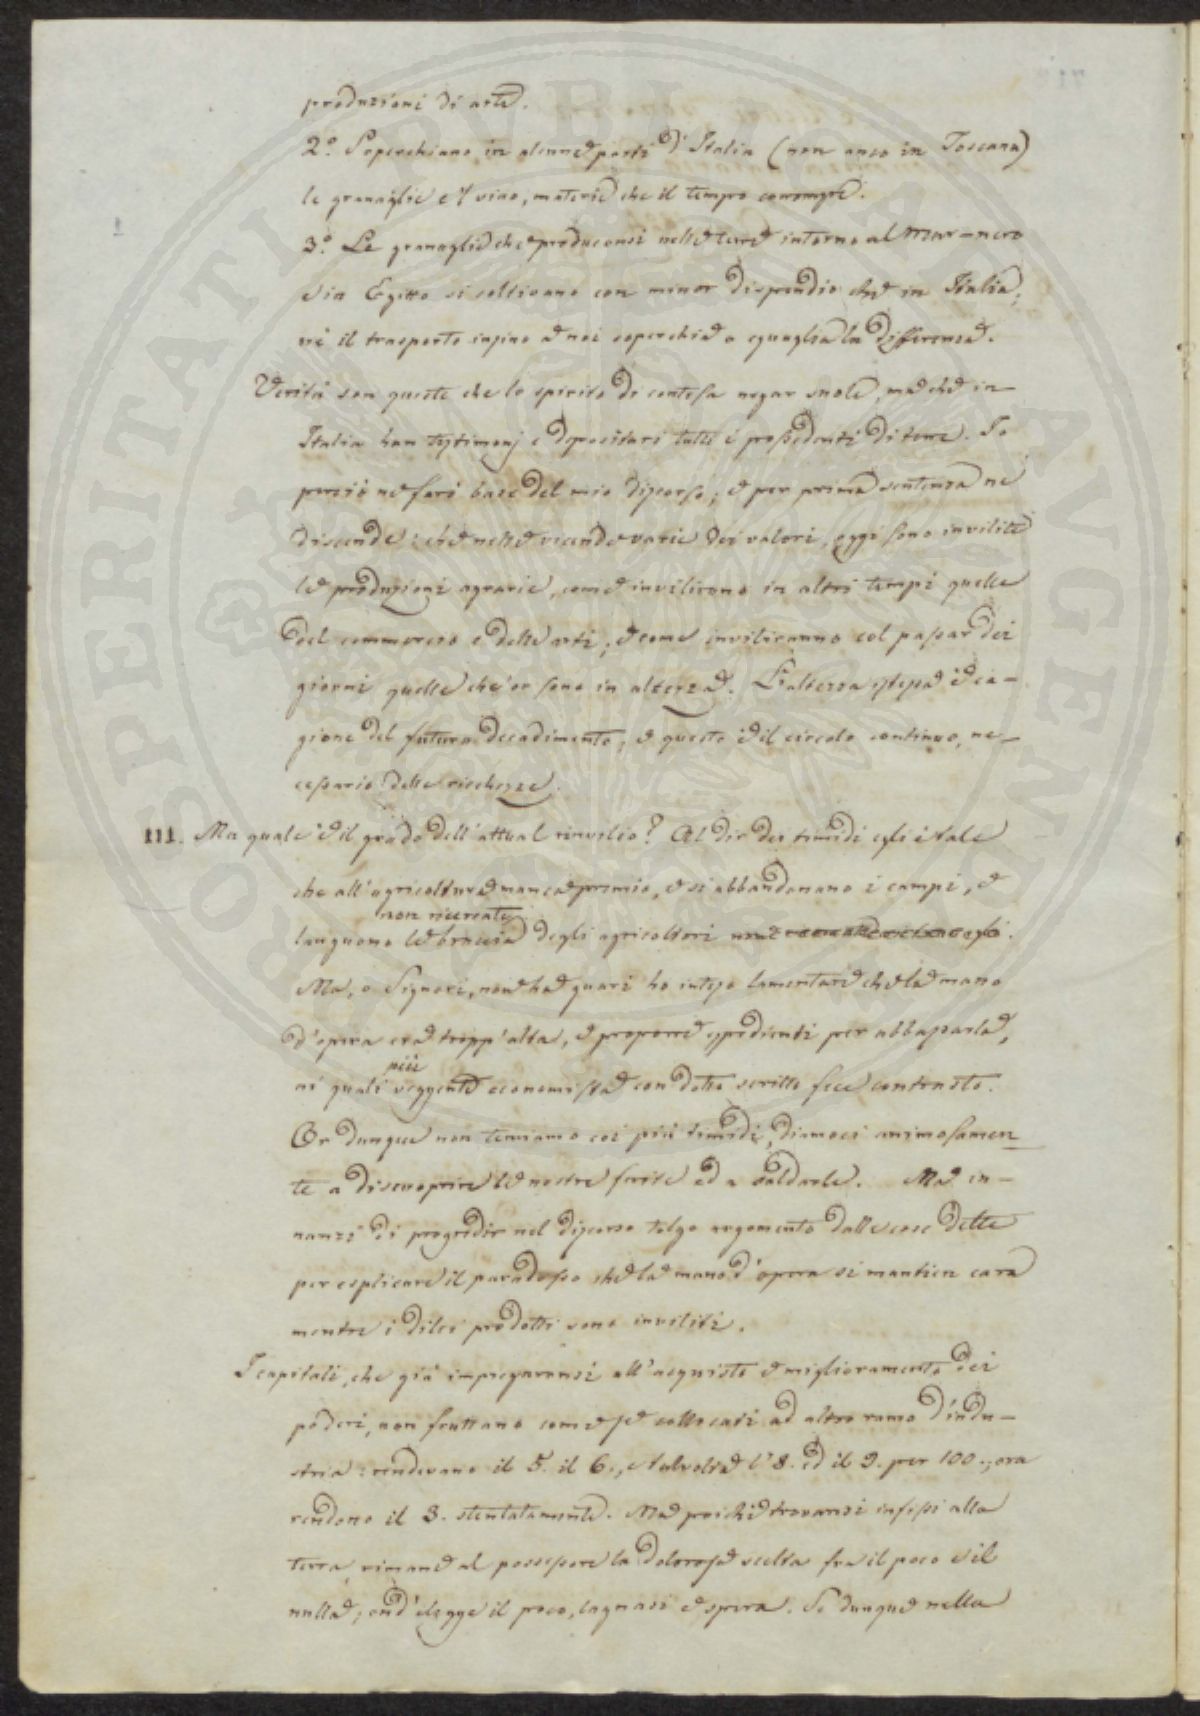 produzioni di arte.
2.° Soperchiano in alcune parti d'Italia (non anco in Toscana)
le granaglie e 'l vino, materie che il tempo corrompe.
3.° Le granaglie che produconsi nelle terre intorno al Mar-nero
e in Egitto si coltivano con minor dispendio che in Italia;
nè il trasporto infino a noi soperchia o eguaglia la differenza.
Verità son queste che lo spirito di contesa negar suole, ma che in-
Italia han testimonj e depositari tutti i possedenti di terre. Io
perciò ne farò base del mio discorso; e per prima sentenza ne
discende: che nelle vicende varie dei valori, oggi sono invilite
le produzioni agrarie, come invilirono in altri tempi quelle
del commercio e delle arti; e come inviliranno col passar dei
giorni quelle che or sono in altezza. L'altezza istessa è ca-
gione del futuro decadimento; e questo è il circolo continuo, ne-
cessario delle ricchezze.
III. Ma quale è il grado dell'attual rinvilio? Al dir dei timidi egli è tale
che all'agricoltura manca premio, e si abbandonano i campi, e
non ricercate
languono le braccia degli agricoltori
Ma, o Signori, non ha guari ho inteso lamentare che la mano
d'opera era tropp'alta, e proporre espedienti per abbassarla,
più
ai quali veggente economista con dotto scritto fece contrasto.
Or dunque non temiamo coi più timidi, diamoci animosamen
te a discuoprire le nostre ferite ed a saldarle. Ma in-
nanzi di progredir nel discorso tolgo argomento dalle cose dette
per esplicare il paradosso che la mano d'opera si mantien cara
mentre i di lei prodotti sono inviliti.
I capitali, che già impiegaronsi all'acquisto e miglioramento dei
poderi, non fruttano come se collocati ad altro ramo d'indu-
stria: rendevano il 5. il 6., e talvolta l'8. ed il 9. per 100.; ora
rendono il 3. stentatamente. Ma poichè trovansi infissi alla
terra, rimane al possessore la dolorosa scelta fra il poco e il
nulla; ond'elegge il poco, lagnasi e spera. Se dunque nella